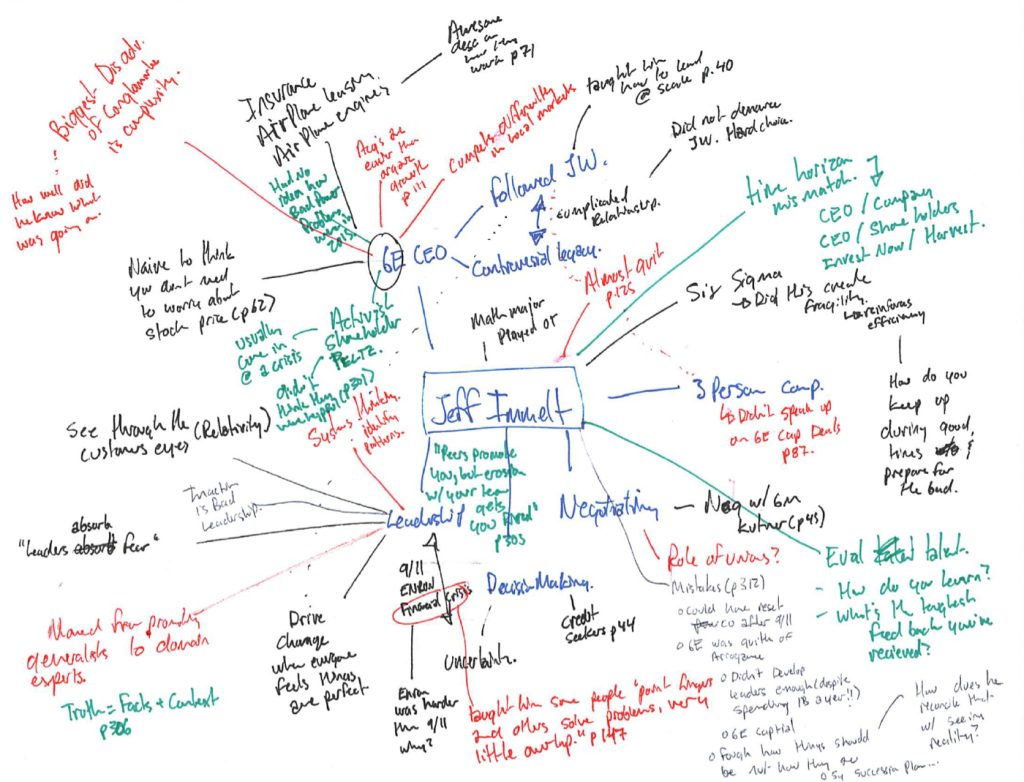 Biggest Disadv.
of Conglomerate
is complexity.
How well did
he know what
was going on.
Insurance
Airplane leasing
Airplane engines
Awesome
desc on
how they
work p71
Acq's are
easier than
organic
growth
p 111
Compete differently
in local markets
Had No
idea how
Bad Power
Problems
were in
2015.
GE CEO
Followed J.W.
Complicated
Relationship.
Controversial legacy.
taught him
how to lead
@ scale p.40
Did not denounce
J.W. Hard choice.
time horizon
mismatch.
CEO / Company
CEO / Shareholders
Invest Now / Harvest.
Naive to think
you don't need
to worry about
stock price (p62)
usually
come in
@ a crisis
Activist
Shareholder
PELTZ.
didn't
think they
were happy (p301)
Math major
Played OT
Almost quit
p.125
Six Sigma
Did this create
fragility.
reinforces
efficiency
How do you
keep up
during good
times &
prepare for
the bad.
Jeff Immelt
3 Person Comp.
Didn't speak up
on GE Cap Deals
p87.
See through the (Relativity)
customers eyes
Systems thinking
identify
patterns.
"Peers promote
you, but erosion
w/ your team
gets
you fired"
p303
Inaction
is Bad
Leadership.
Leadership
absorb
"Leaders absorb fear"
Negotiating
Neg w/ GM
(p45)
Role of unions?
Moved from promoting
generalists to domain
experts.
Truth = Facts + Context
p306
Drive
Change
when everyone
feels things
are perfect
9/11
ENRON
Financial Crisis
Enron
was harder
than 9/11
why?
Decision Making.
Uncertainty.
Credit
seekers p44
taught him some people "point fingers
and others solve problems, very
little overlap." p147
Mistakes (p312)
o could have reset
co after 9/11
o GE was guilty of
Arrogance
o Didn't Develop
leaders enough (despite
spending 1B a year!!)
o GE capital
o Fough how things should
be not how they are
o succession plan...
How does he
reconcile that
w/ seeing
reality?
Eval talent.
- How do you learn?
- What's the toughest
feedback you've
recieved?